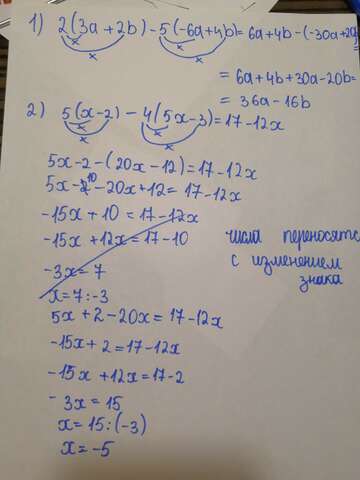 1) 2(3a+2b)-5(-6a+4b)=6a+4b-(-30a+20b)=
= 6a+4b+30a-20b=
= 36a-16b
2) 5(x-2)-4(5x-3)=17-12x
5x-2-(20x-12)=17-12x
5x-10-20x+12=17-12x
-15x+10=17-12x
-15x+12x=17-10
числа переносятся
с изменением
знака
-3x=7
x=7:-3
5x+2-20x=17-12x
-15x+2=17-12x
-15x+12x=17-2
-3x=15
x=15:(-3)
x=-5